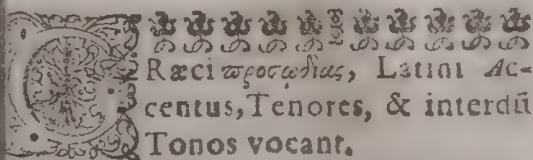 GRæci προσῳδίας, Latini Ac-
centus, Tenores, & interdũ
Tonos vocant.